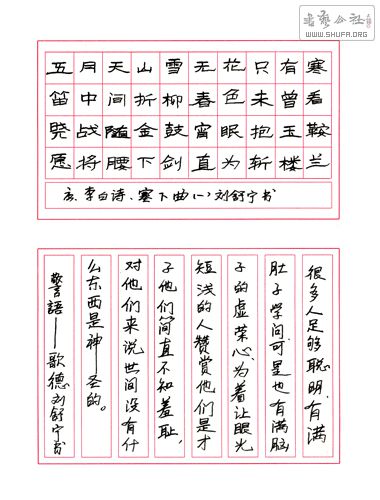 书艺公社
WWW.SHUFA.ORG
五月天山雪无花只有寒
笛中间折柳春色未曾看
晓战随金鼓宵眠抱玉鞍
愿将腰下剑直为斩楼兰
李白诗、塞下曲(一)刘舒宁书
很多人足够聪明,有满
肚子学问,可是也有满脑
子的虚荣心,为着让眼光
短浅的人赞赏他们是才
子他们简直不知羞耻,
对他们来说世间没有什
么东西是神—圣的。
警語——歌德刘舒宁书